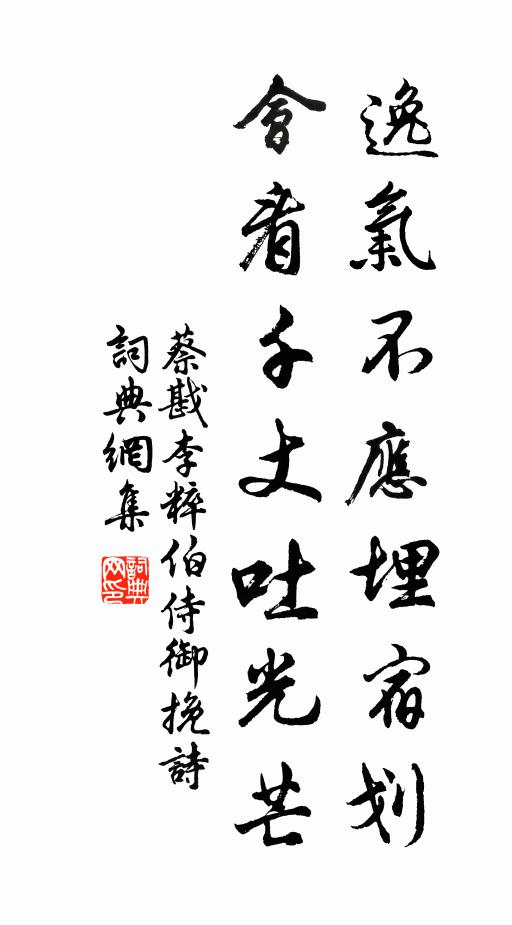 逸氣不應埋宿划
會看千丈吐光芒
蔡戡李粹伯侍御挽詩
詞典網集
詞典
网印